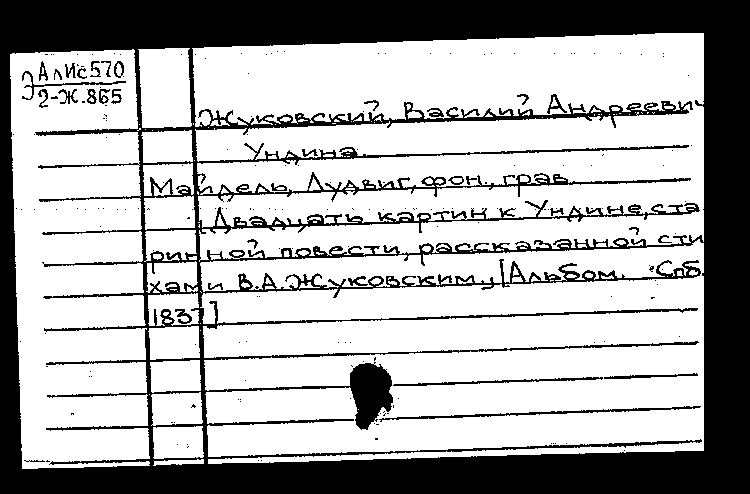 Э АлИс570
2-Ж.865
Жуковский, Василий Андреевич
Ундина.
Майдель, Лудвиг, фон., грав.
Двадцать картин к Ундине, ста
ринной повести, рассказанной сти
хами В.А.Жуковским., [Альбом. Спб.
1837]